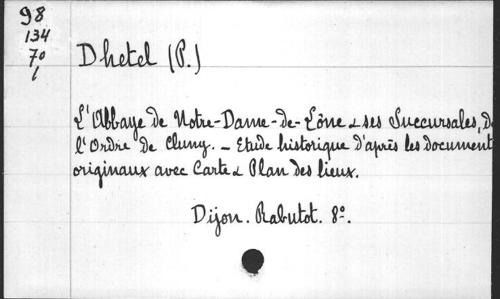 98
134
70
1
Dhetel (P.)
L'Abbaye de Notre-Dame-de-Lône & ses Succursales, de
l'Ordre de Cluny. - Etude historique d'après les document
originaux avec Carte & Plan des lieux.
Dijon. Rabutot. 8º.